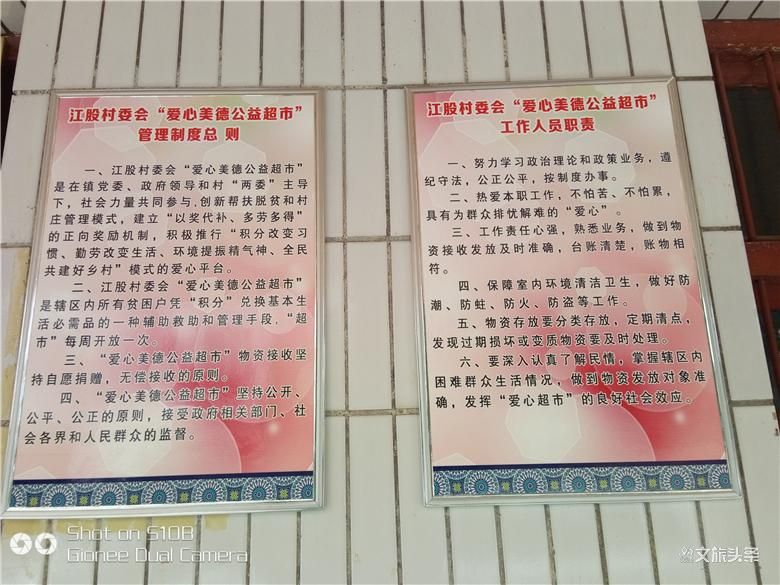 江股村委会“爱心美德公益超市”
管理制度总 则
一、江股村委会“爱心美德公益超市”
是在镇党委、政府领导和村“两委”主导
下,社会力量共同参与,创新帮扶脱贫和村
庄管理模式,建立“以奖代补、多劳多得”
的正向奖励机制,积极推行“积分改变习
惯、勤劳改变生活、环境提振精气神、全民
共建好乡村”模式的爱心平台。
二、江股村委会“爱心美德公益超市”
是辖区内所有贫困户凭“积分”兑换基本生
活必需品的一种辅助救助和管理手段,“超
市”每周开放一次。
三、“爱心美德公益超市”物资接收坚
持自愿捐赠,无偿接收的原则。
四、“爱心美德公益超市”坚持公开、
公平、公正的原则,接受政府相关部门、社
会各界和人民群众的监督。
江股村委会“爱心美德公益超市”
工作人员职责
一、努力学习政治理论和政策业务,遵
纪守法,公正公平,按制度办事。
二、热爱本职工作,不怕苦、不怕累,
具有为群众排忧解难的“爱心”。
三、工作责任心强,熟悉业务,做到物
资接收发放及时准确,台账清楚,账物相
符。
四、保障室内环境清洁卫生,做好防
潮、防蛀、防火、防盗等工作。
五、物资存放要分类存放,定期清点,
发现过期损坏或变质物资要及时处理。
六、要深入认真了解民情,掌握辖区内
困难群众生活情况,做到物资发放对象准
确,发挥“爱心超市”的良好社会效应。
Shot on S10B
Gionee Dual Camera
文旅头条